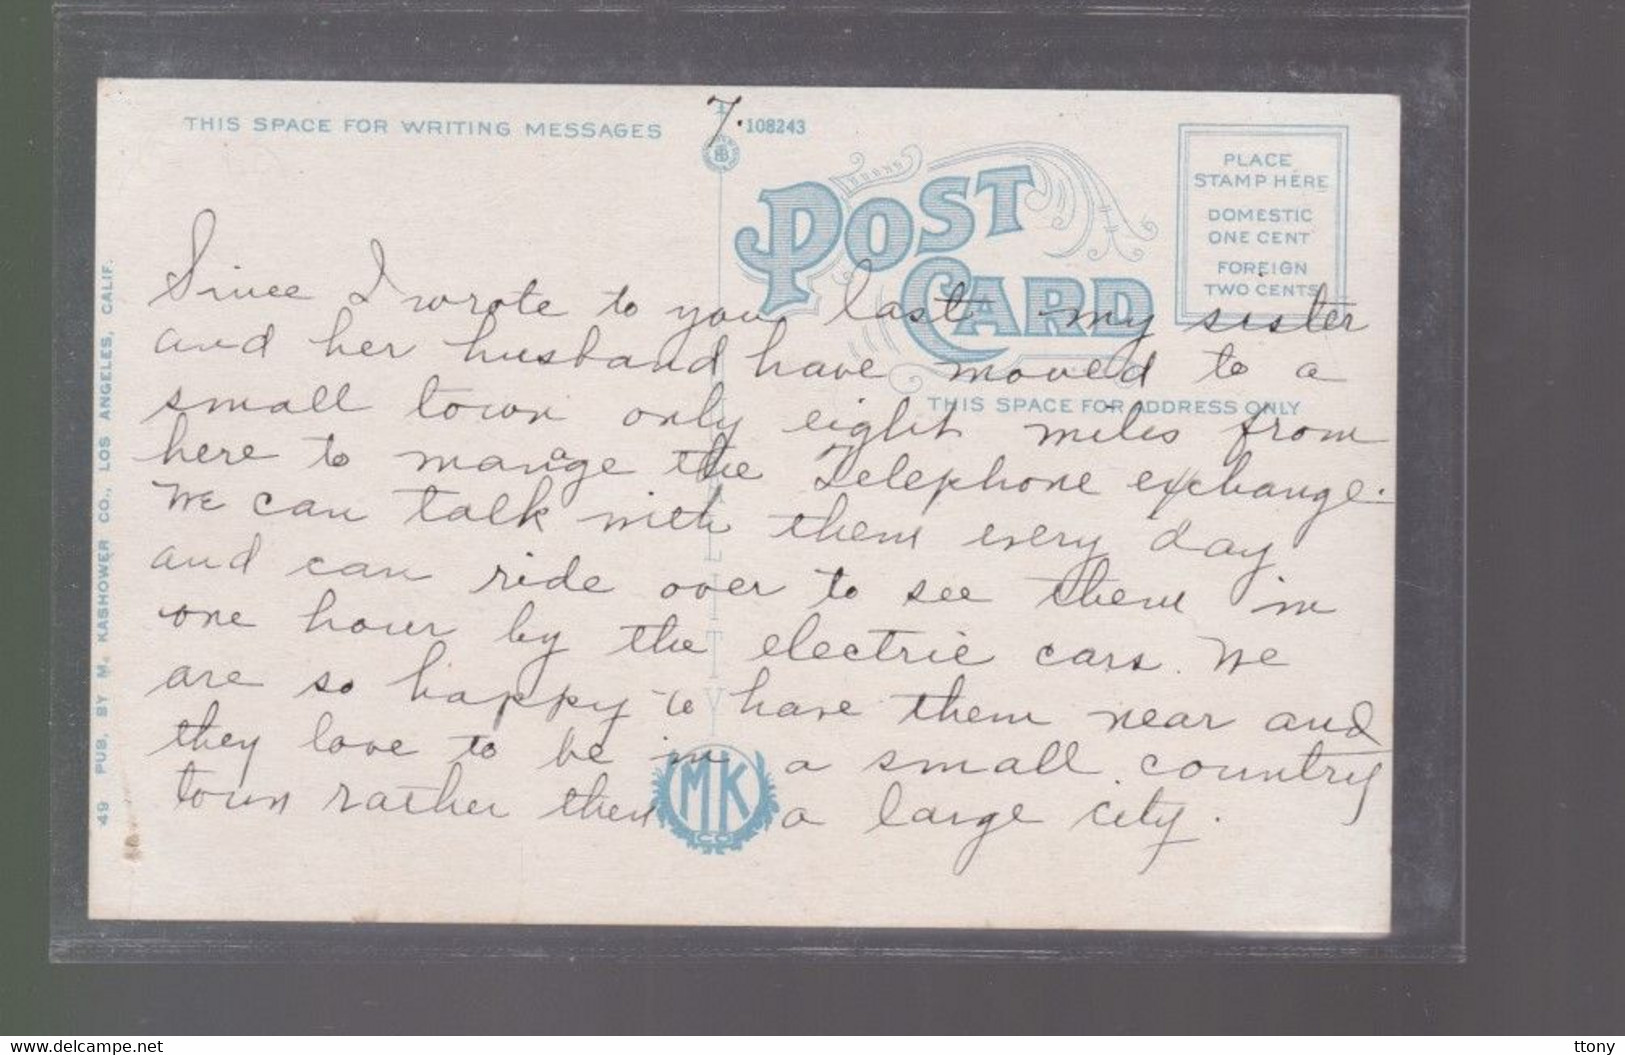 THIS SPACE FOR WRITING MESSAGES
7.
108243
POST CARD
PLACE
STAMP HERE
DOMESTIC
ONE CENT
FOREIGN
TWO CENTS
THIS SPACE FOR ADDRESS ONLY
Since I wrote to you last my sister
and her husband have moved to a
small town only eight miles from
here to manage the Telephone exchange.
We can talk with them every day
and can ride over to see them in
one hour by the electric cars. We
are so happy to have them near and
they love to be in a small country
town rather then a large city.
49 PUB. BY M. KASHOWER CO., LOS ANGELES, CALIF.
MK
CO
delcampe.net
ttony